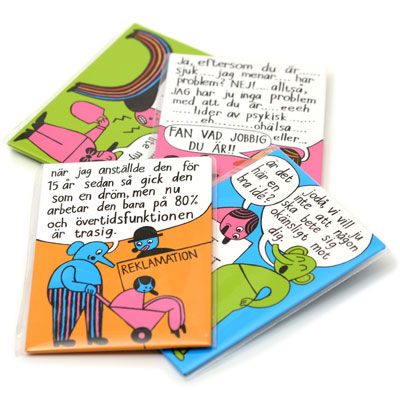 Ja, eftersom du är......
sjuk.... jag menar.... har
problem? NEJ!.... alltså,
JAG har ju inga problem
med att du är.... eeeh
.......... lider av psykisk
......eh.......ohälsa...
FAN VAD JOBBIG eller...
DU ÄR!!
när jag anställde den för
15 år sedan så gick den
som en dröm, men nu
arbetar den bara på 80%
och övertidsfunktionen
är trasig.
REKLAMATION
är det
här en
bra idé?
jodå, vi vill ju
inte att någon
ska bete sig
okänsligt mot
dig.